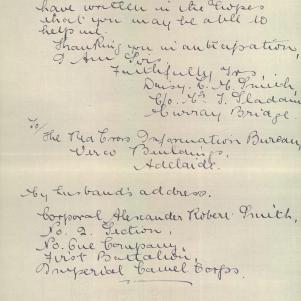 have written in the hopes
that you may be able to
help me.
Thanking you in anticipation,
I Am Sir,
Faithfully Yrs,
Daisy E. M. Smith,
C/o Mr. T. Gladdin
Murray Bridge.
To/
The Red Cross Information Bureau
Verco Buildings,
Adelaide.
My husband's address.
Corporal Alexander Robert Smith,
No. 2. Section,
No. One Company,
First Battalion,
Imperial Camel Corps.